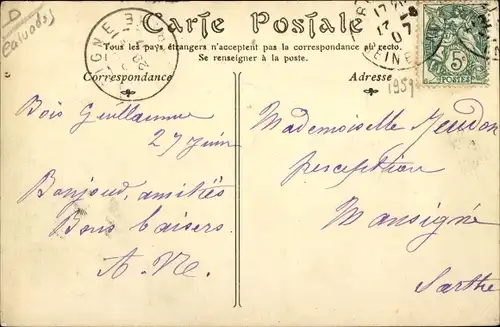 Carte Postale
Tous les pays étrangers n'acceptent pas la correspondance au recto.
Se renseigner à la poste.
Correspondance
Adresse
D
Calvados
1959
5c
POSTES
Bois Guillaume
27 Juin
Bonjoud, amitiés
Bons baisers
A. Ve.
Mademoiselle
perception
Mansigné
Sarthe